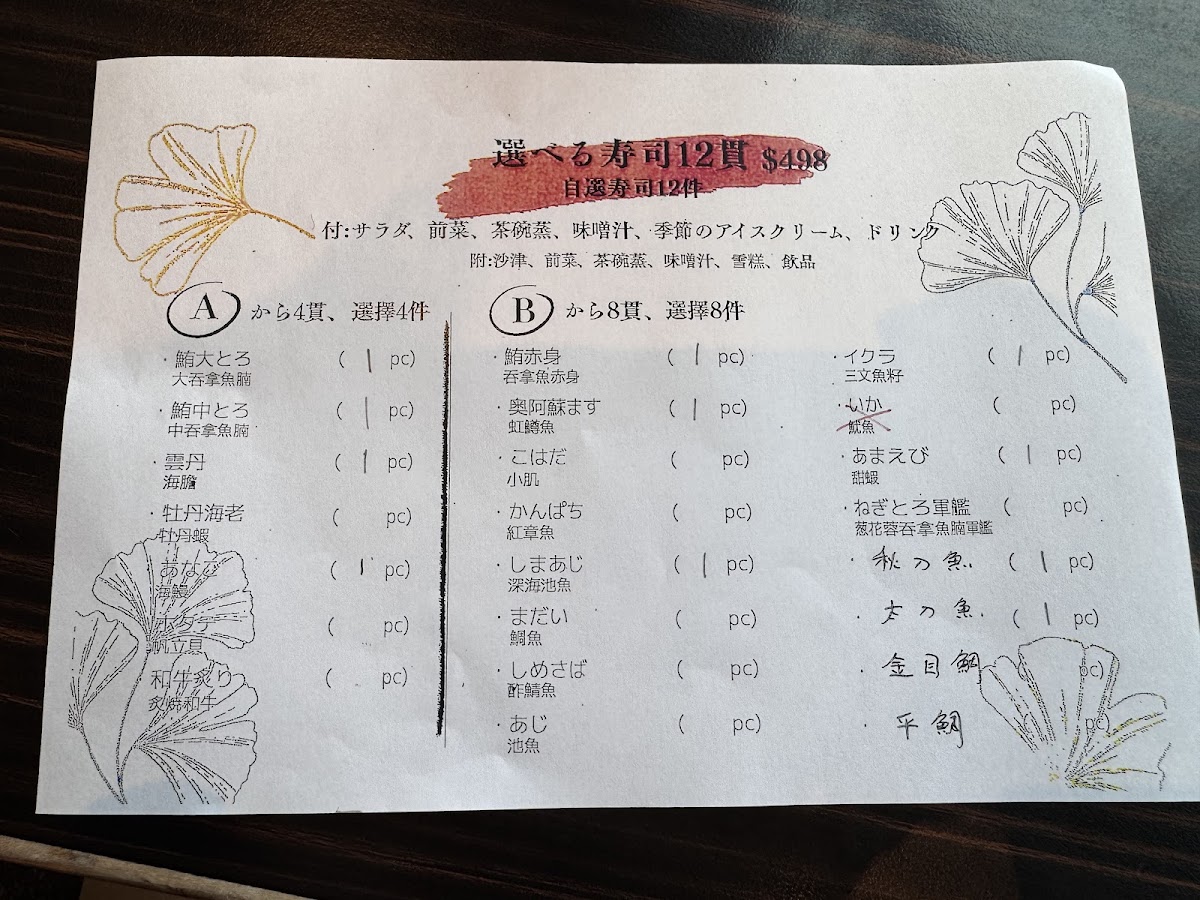 選べる寿司12貫 $498
自選寿司12件
付:サラダ、前菜、茶碗蒸、味噌汁、季節のアイスクリーム、ドリンク
附:沙津、前菜、茶碗蒸、味噌汁、雪糕、飲品
A から4貫、選擇4件
・鮪大とろ ( 1 pc)
大吞拿魚腩
・鮪中とろ ( 1 pc)
中吞拿魚腩
・雲丹 ( 1 pc)
海膽
・牡丹海老 ( pc)
牡丹蝦
あなご ( 1 pc)
海鰻
ホタテ ( pc)
帆立貝
和牛炙り ( pc)
炙燒和牛
B から8貫、選擇8件
・鮪赤身 ( 1 pc)
吞拿魚赤身
・奥阿蘇ます ( 1 pc)
虹鱒魚
・こはだ ( pc)
小肌
・かんぱち ( pc)
紅章魚
・しまあじ ( 1 pc)
深海池魚
・まだい ( pc)
鯛魚
・しめさば ( pc)
酢鯖魚
・あじ ( pc)
池魚
・イクラ ( 1 pc)
三文魚籽
・いか ( pc)
魷魚
・あまえび ( 1 pc)
甜蝦
・ねぎとろ軍艦 ( pc)
葱花蓉吞拿魚腩軍艦
・秋刀魚 ( 1 pc)
・太刀魚 ( 1 pc)
・金目鯛 pc)
・平鯛 pc)